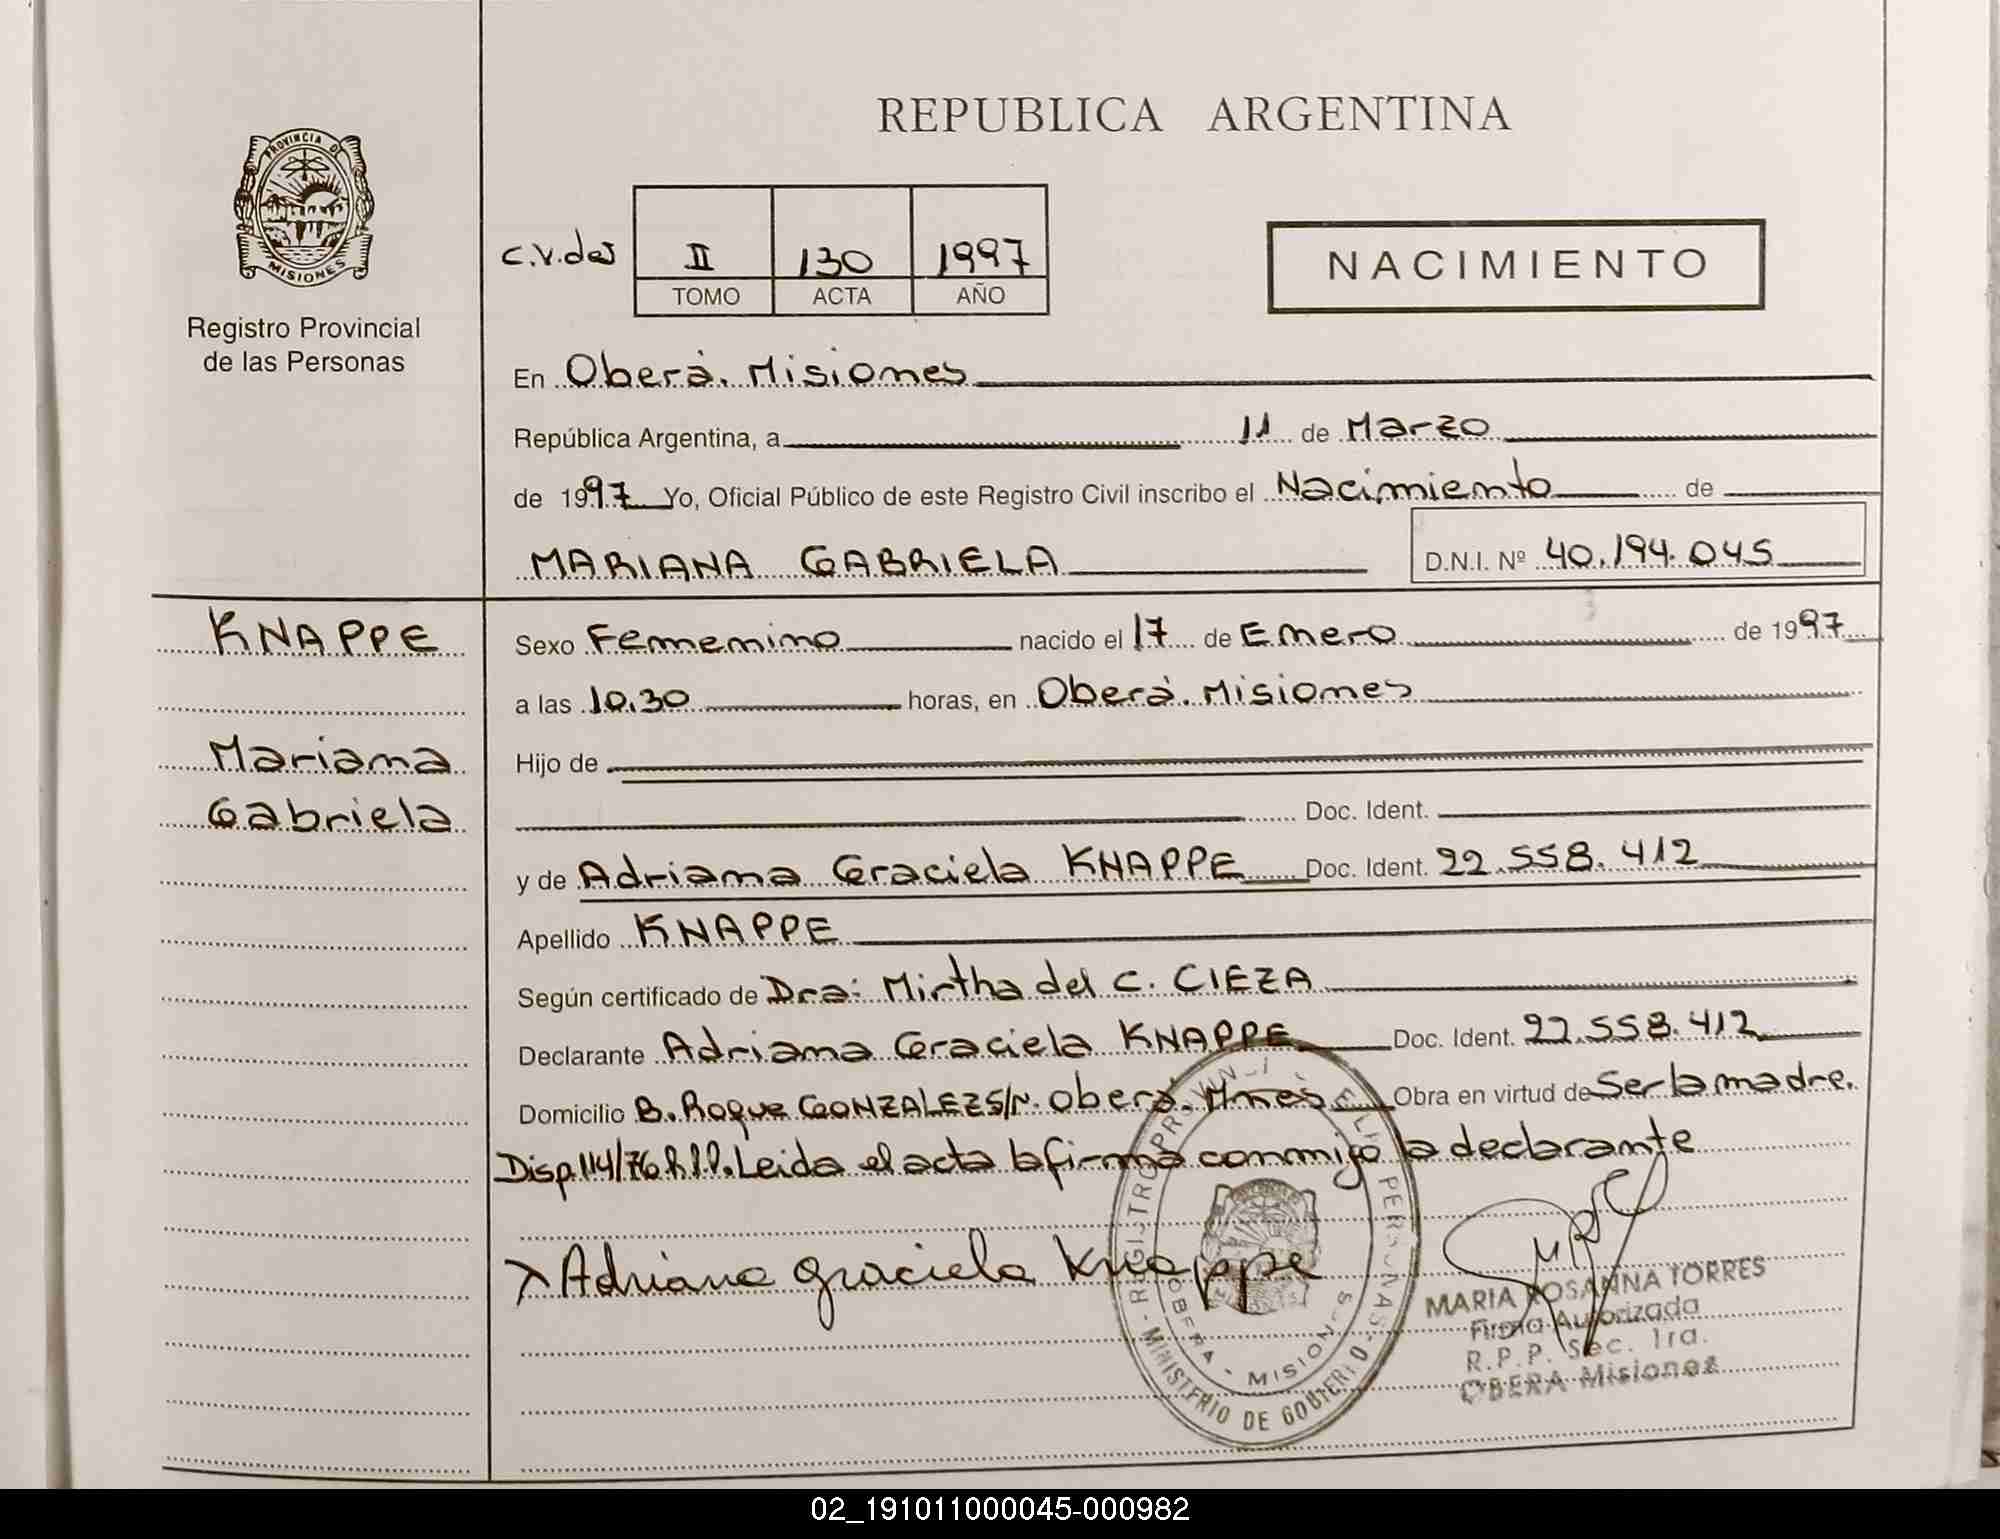 PROVINCIA DE
MISIONES
Registro Provincial
de las Personas
REPUBLICA ARGENTINA
II 130 1997
TOMO ACTA AÑO
NACIMIENTO
En Oberá. Misiones
República Argentina, a 11 de Marzo
de 1997 Yo, Oficial Público de este Registro Civil inscribo el Nacimiento de
MARIANA GABRIELA D.N.I. Nº 40.194.045
KNAPPE
Mariana
Gabriela
Sexo Femenino nacido el 17 de Enero de 1997
a las 10.30 horas, en Oberá. Misiones
Hijo de
Doc. Ident.
y de Adriana Graciela KNAPPE Doc. Ident. 22.558.412
Apellido KNAPPE
Según certificado de Dra: Mirtha del C. CIEZA
Declarante Adriana Graciela KNAPPE Doc. Ident. 22.558.412
Domicilio B. Roque GONZALEZ S/N. Oberá. Mnes Obra en virtud de Ser la madre.
Disp. 114/76 R.P.P. Leida el acta la firma conmigo la declarante
X Adriana Graciela Knappe
MINISTERIO DE GOBIERNO
OBERA - MISIONES
MARIA ROSANNA TORRES
Firma Autorizada
R.P.P. Sec. 1ra.
OBERA Misiones
02_191011000045-000982